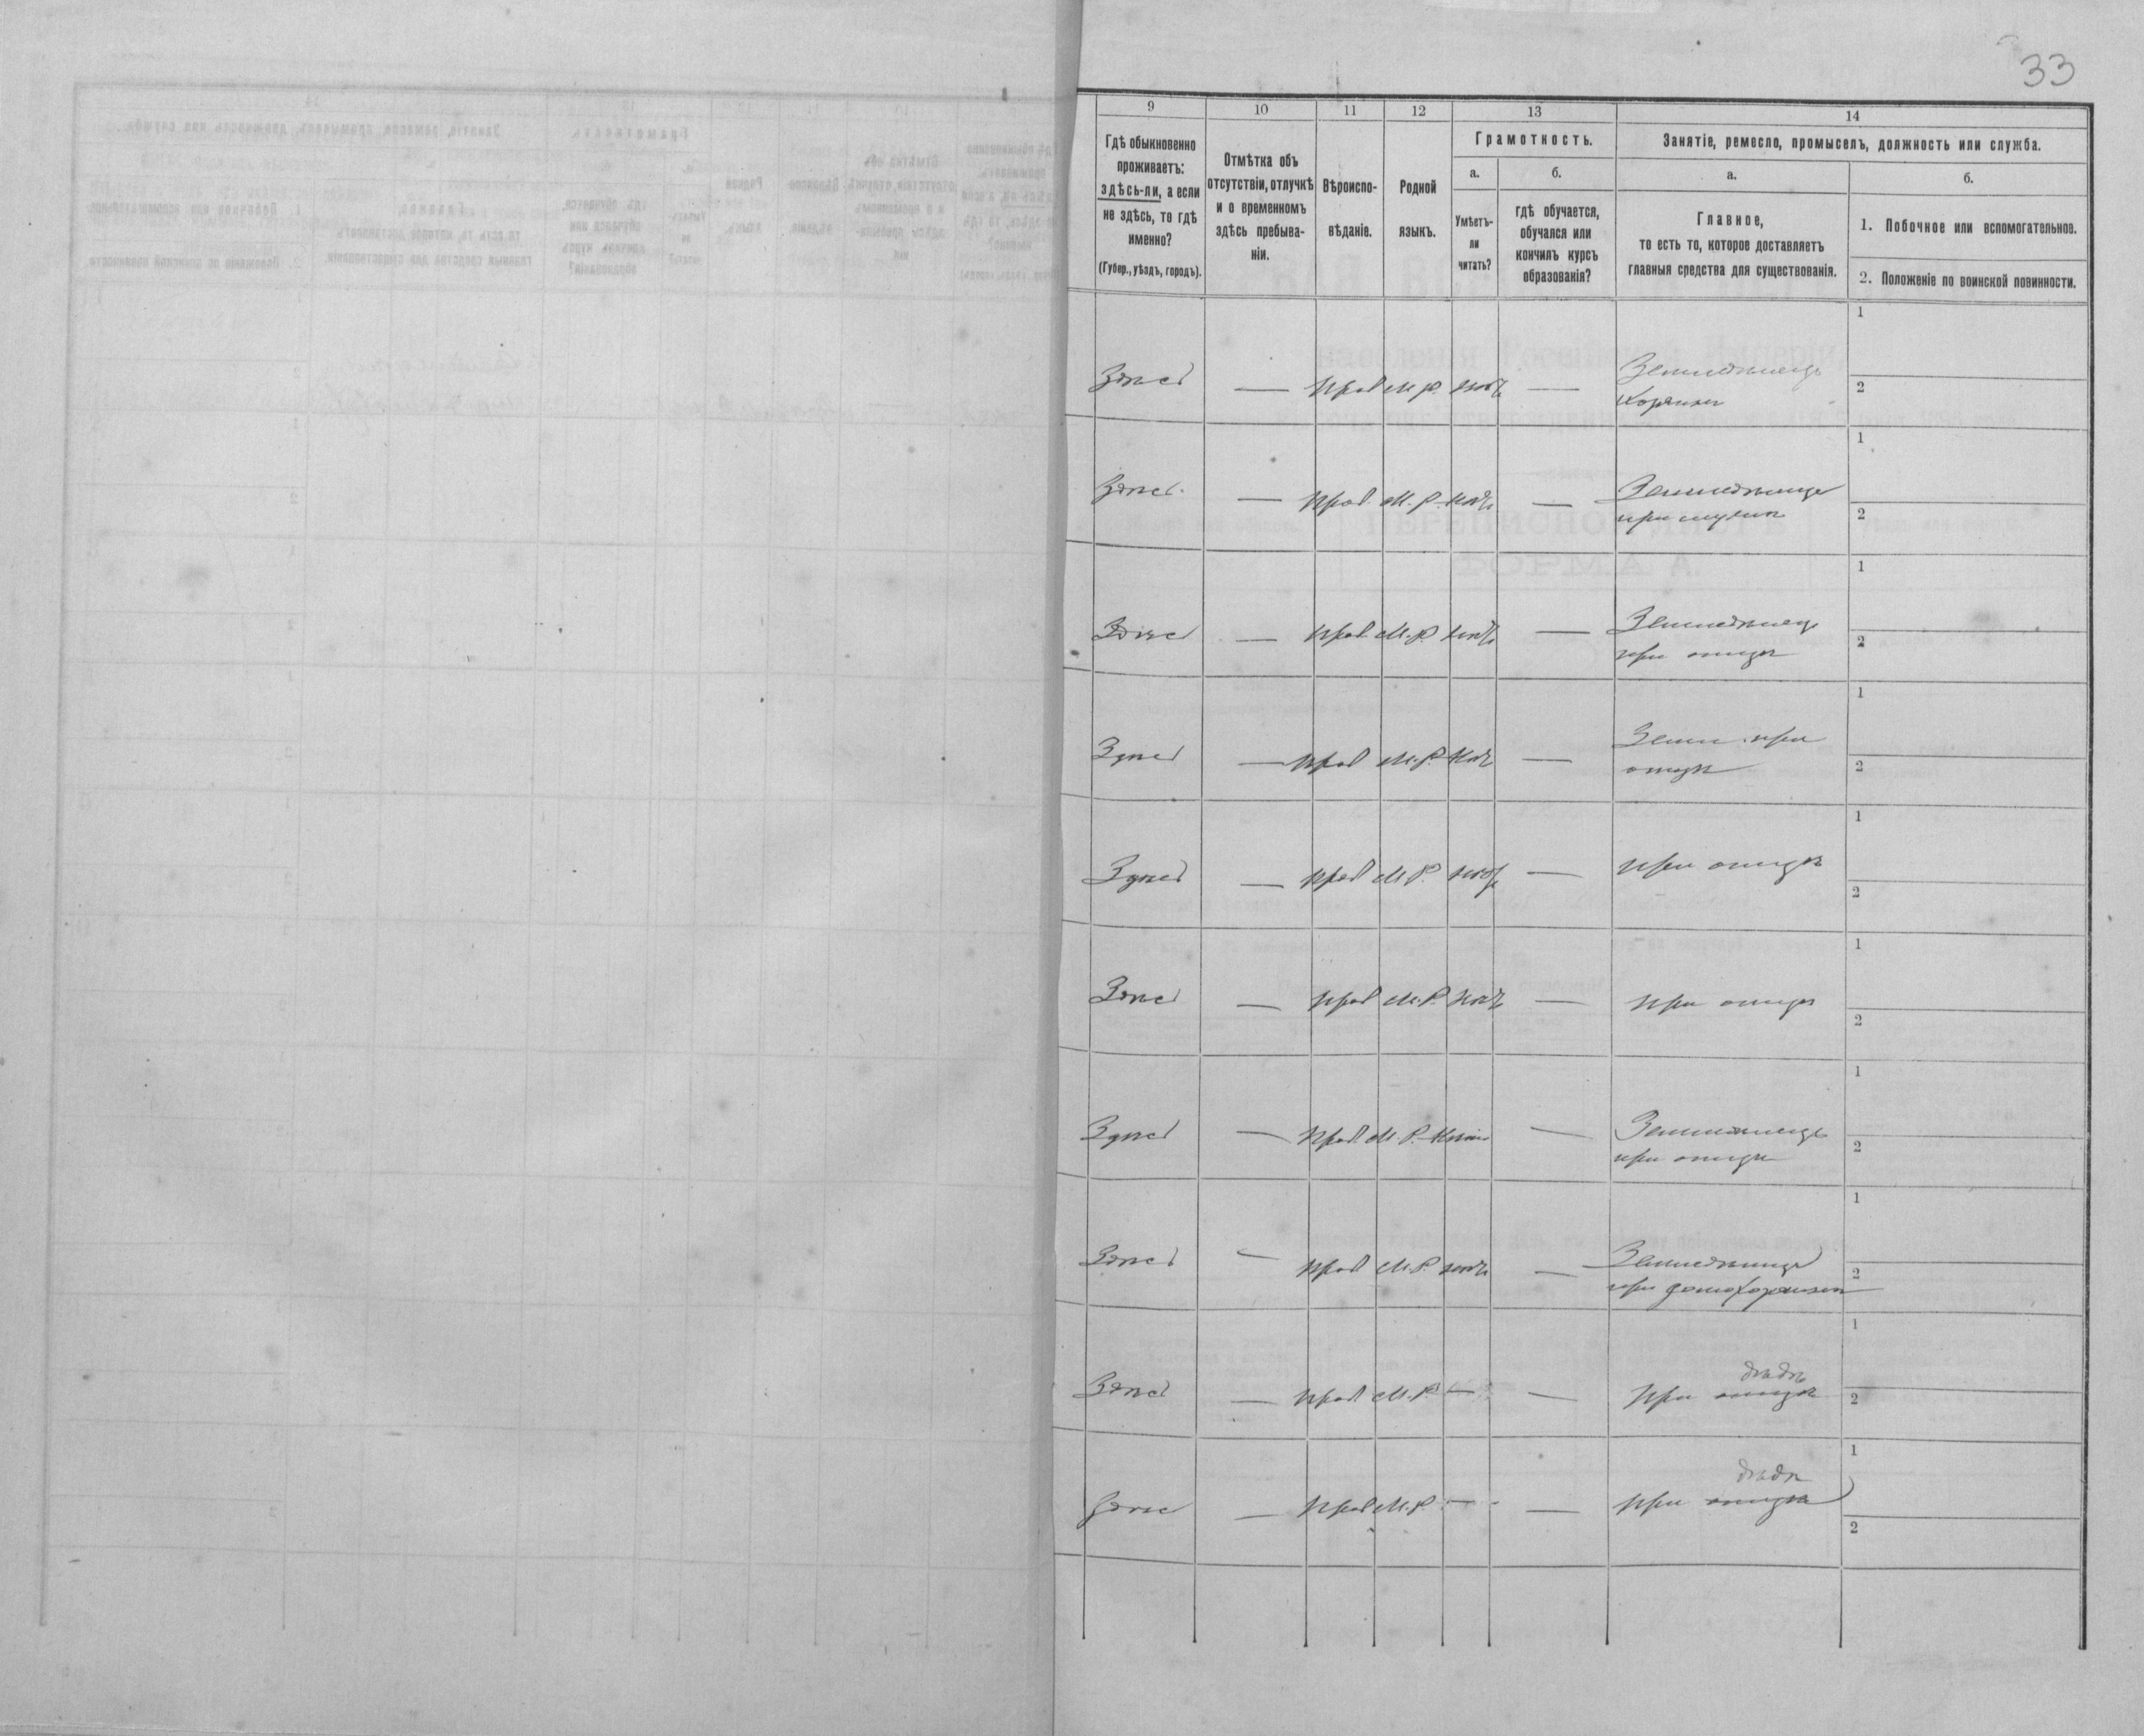 33
9 10 11 12 13 14
Гдѣ обыкновенно
проживаетъ:
здѣсь-ли, а если
не здѣсь, то гдѣ
именно?
(Губер., уѣздъ, городъ).
Отмѣтка объ
отсутствіи, отлучкѣ
и о временномъ
здѣсь пребыва-
ніи.
Вѣроиспо-
вѣданіе.
Родной
языкъ.
Грамотность.
а.
Умѣетъ-
ли
читать?
б.
гдѣ обучается,
обучался или
кончилъ курсъ
образованія?
Занятіе, ремесло, промыселъ, должность или служба.
а.
Главное,
то есть то, которое доставляетъ
главныя средства для существованія.
б.
1. Побочное или вспомогательное.
2. Положеніе по воинской повинности.
1
Здѣсь — прав М.Р. нѣтъ — Земледѣлецъ
2
хозяинъ
1
Здѣсь — прав. М.Р. нѣтъ — Земледѣлица
2
при мужѣ
1
Здѣсь — прав. М.Р. нѣтъ — Земледѣлецъ
2
при отцѣ
1
Здѣсь — прав М.Р. нѣтъ — Земл. при
2
отцѣ
1
Здѣсь — прав М.Р. нѣтъ — при отцѣ
2
1
Здѣсь — прав М.Р. нѣтъ — при отцѣ
2
1
Здѣсь — прав. М.Р. — Земледѣлецъ
2
при отцѣ
1
Здѣсь — прав М.Р. нѣтъ — Земледѣлица
2
при домохозяинѣ
1
дѣдѣ
Здѣсь — прав. М.Р. — — при отцѣ
2
1
дѣдѣ
Здѣсь — прав М.Р. — — при отцѣ
2